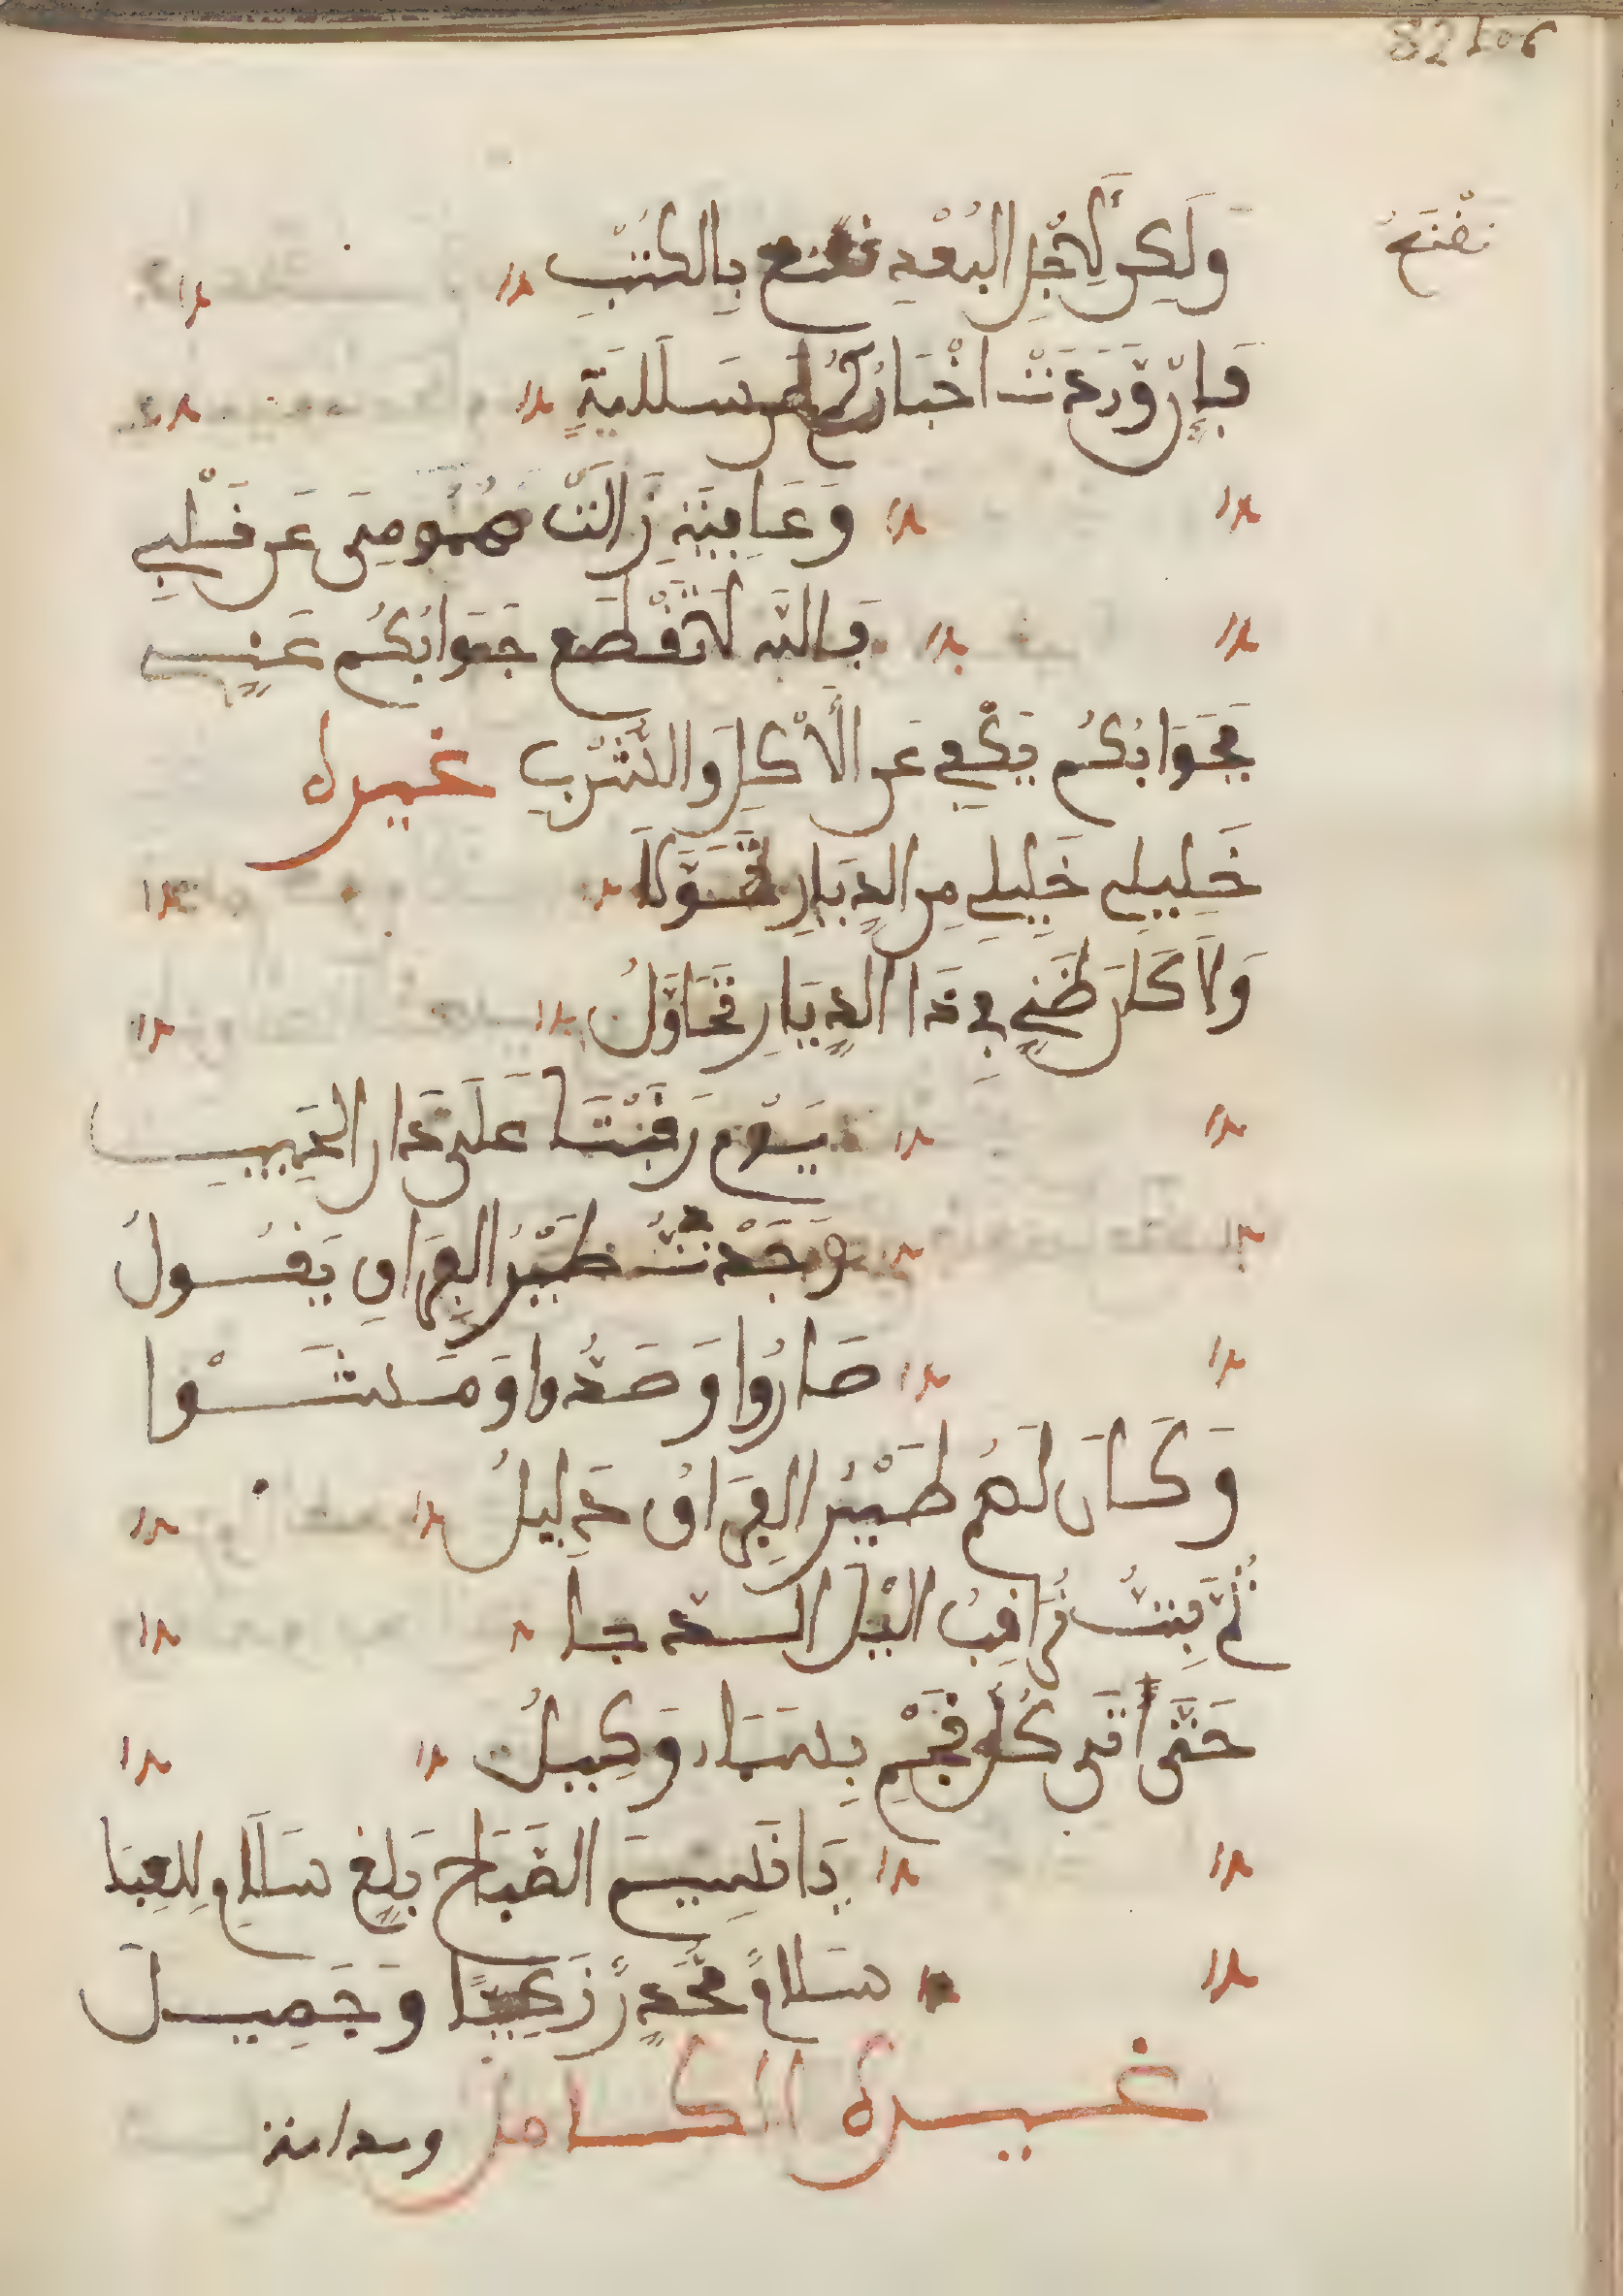 82 106
نَقْنَعُ
وَلَكِن لِأَجْلِ الْبُعْدِ نقنع بِالْكُتْبِ
فَإِن وَرَدَتْ اخْبَارُكُم لِي سَالِمَةٍ
وَعَافِيَةٍ زَالَتْ هُمُومِي عَن قَلْبِي
فَبِاللَّه لَا تَقْطَع جَوَابُكُم عَنِّي
فَجَوَابُكُم يَكْفِي عَنِ الْأَكْلِ وَالشُّرْبِ غيره
خَلِيلِي خَلِيلِي مِنَ الدِّيَارِ تَحَوَّلَا
وَلَا كَانَ ظَنِّي فِي ذَا الدِّيَارِ تَحَاوُلُ
يَوْم رَفَبْتَا عَلَى دَار الْحَبِيبِ
وَجَدْتُ طَيْرُ الْفِرَاقِ يَقُولُ
صَارُوا وَصَدُّوا وَمَشَوْا
وَكَان لَهُم طَيْرُ الْفِرَاقُ دَلِيلُ
ثُمَّ بِتُّ نُرَاقِبُ الَّيْل
حَتَّى أَتَى كُلُّ نَجْمٍ بِسَمَاء وَكِيلُ
يَا نَسِيمَ الصَّبَاح بَلِّغ سَلَامِ لِلْعِبَا
سَلَامُ مُحَمَّدٍ زَكِيًّا وَجَمِيل
غيره الكامل